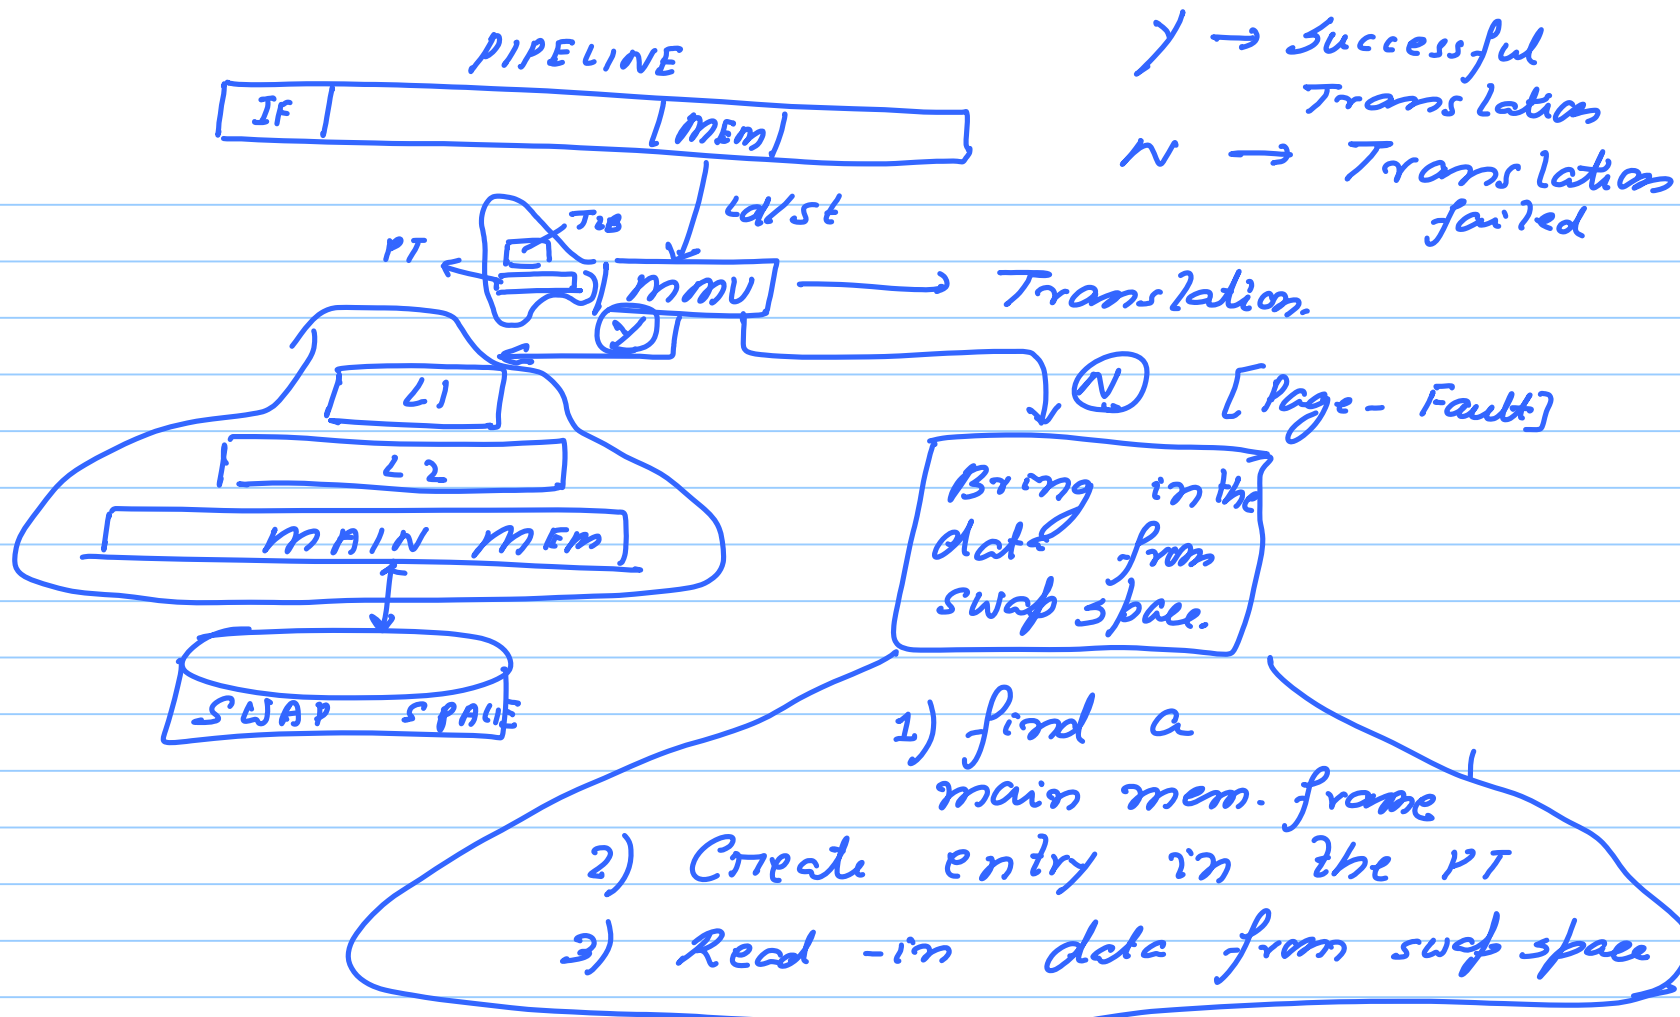 PIPELINE
IF
MEM
Y → Successful
Translation
N → Translation
failed
Ld/st
TLB
PT
MMU
Translation.
Y
N
[Page-Fault]
L1
L2
MAIN MEM
SWAP SPACE
Bring in the
data from
swap space.
1) find a
main mem. frame
2) Create entry in the PT
3) Read-in data from swap space